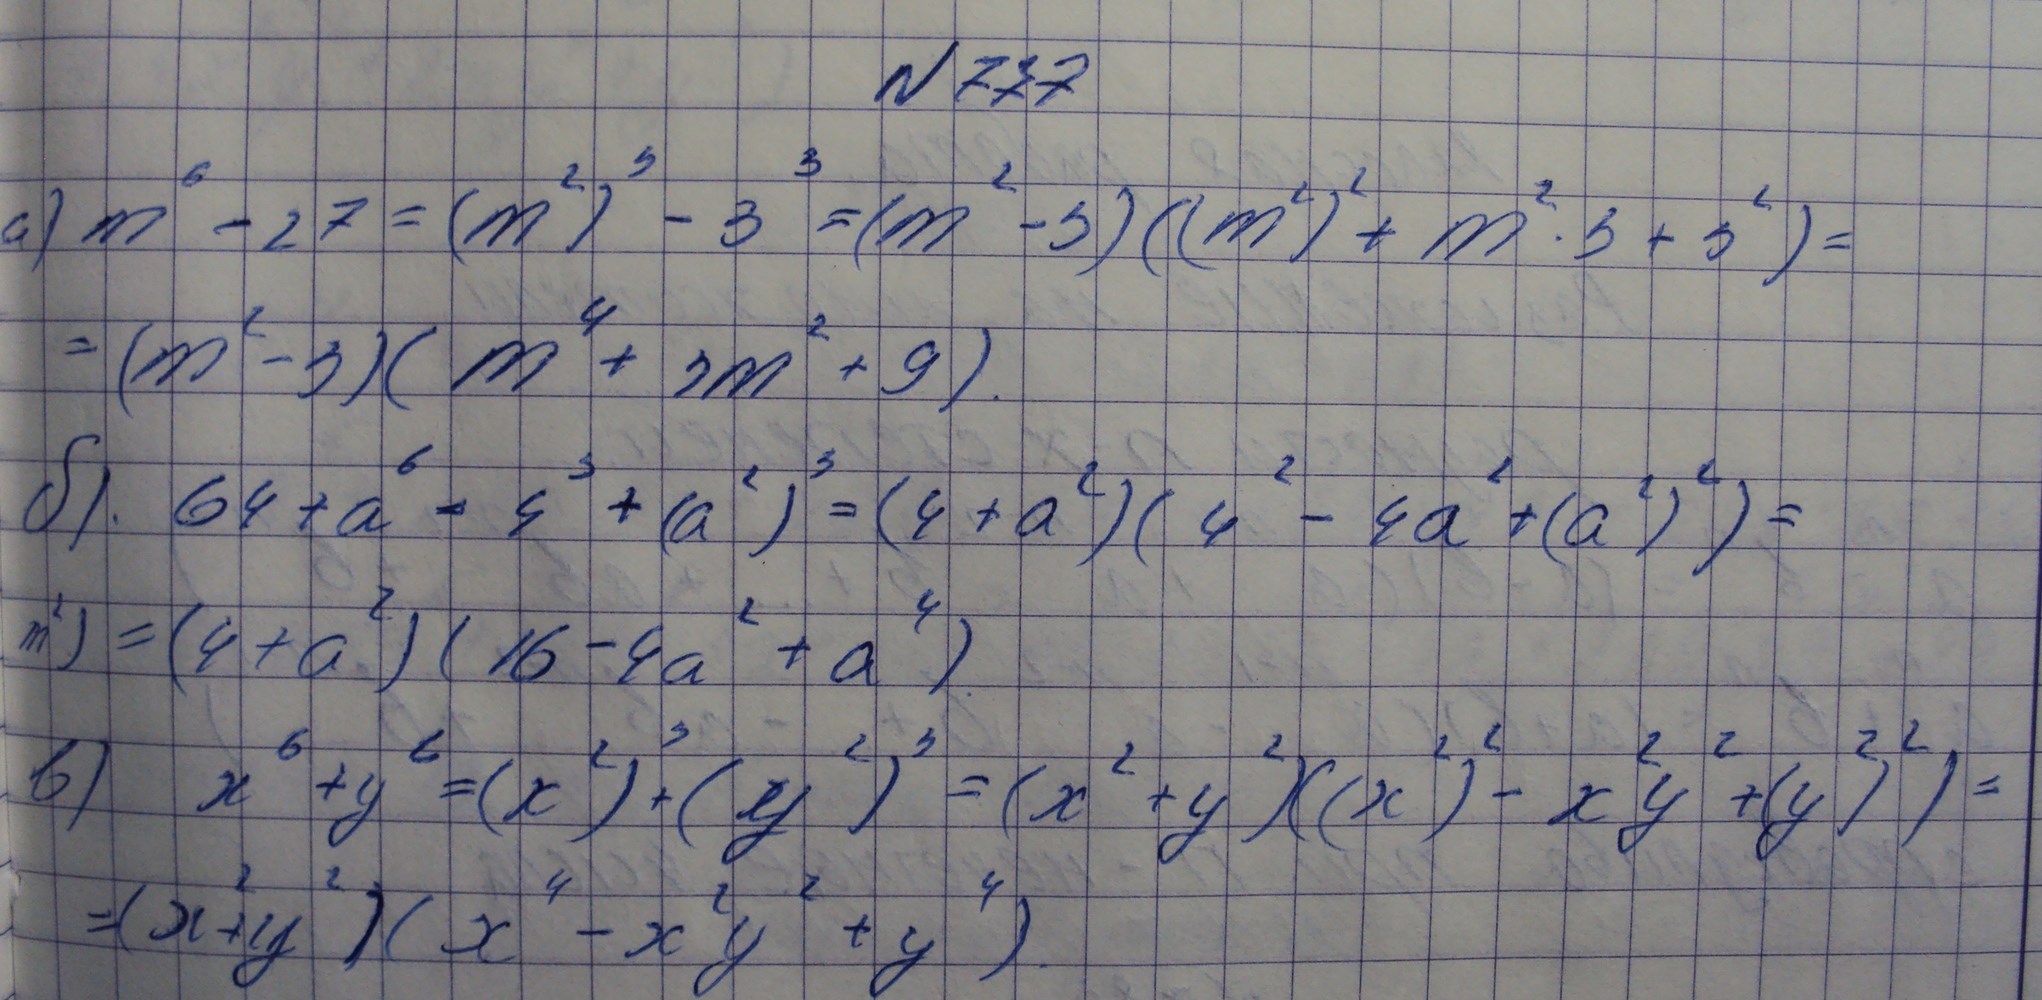 N 777
а) m⁶ - 27 = (m²)³ - 3³ = (m² - 3)((m²)² + m² · 3 + 3²) =
= (m² - 3)(m⁴ + 3m² + 9).
б). 64 + a⁶ - 4³ + (a²)³ = (4 + a²)(4² - 4a² + (a²)²) =
m²) = (4 + a²)(16 - 4a² + a⁴).
в) x⁶ + y⁶ = (x²)³ + (y²)³ = (x² + y²)((x²)² - x²y² + (y²)²) =
= (x² + y²)(x⁴ - x²y² + y⁴).